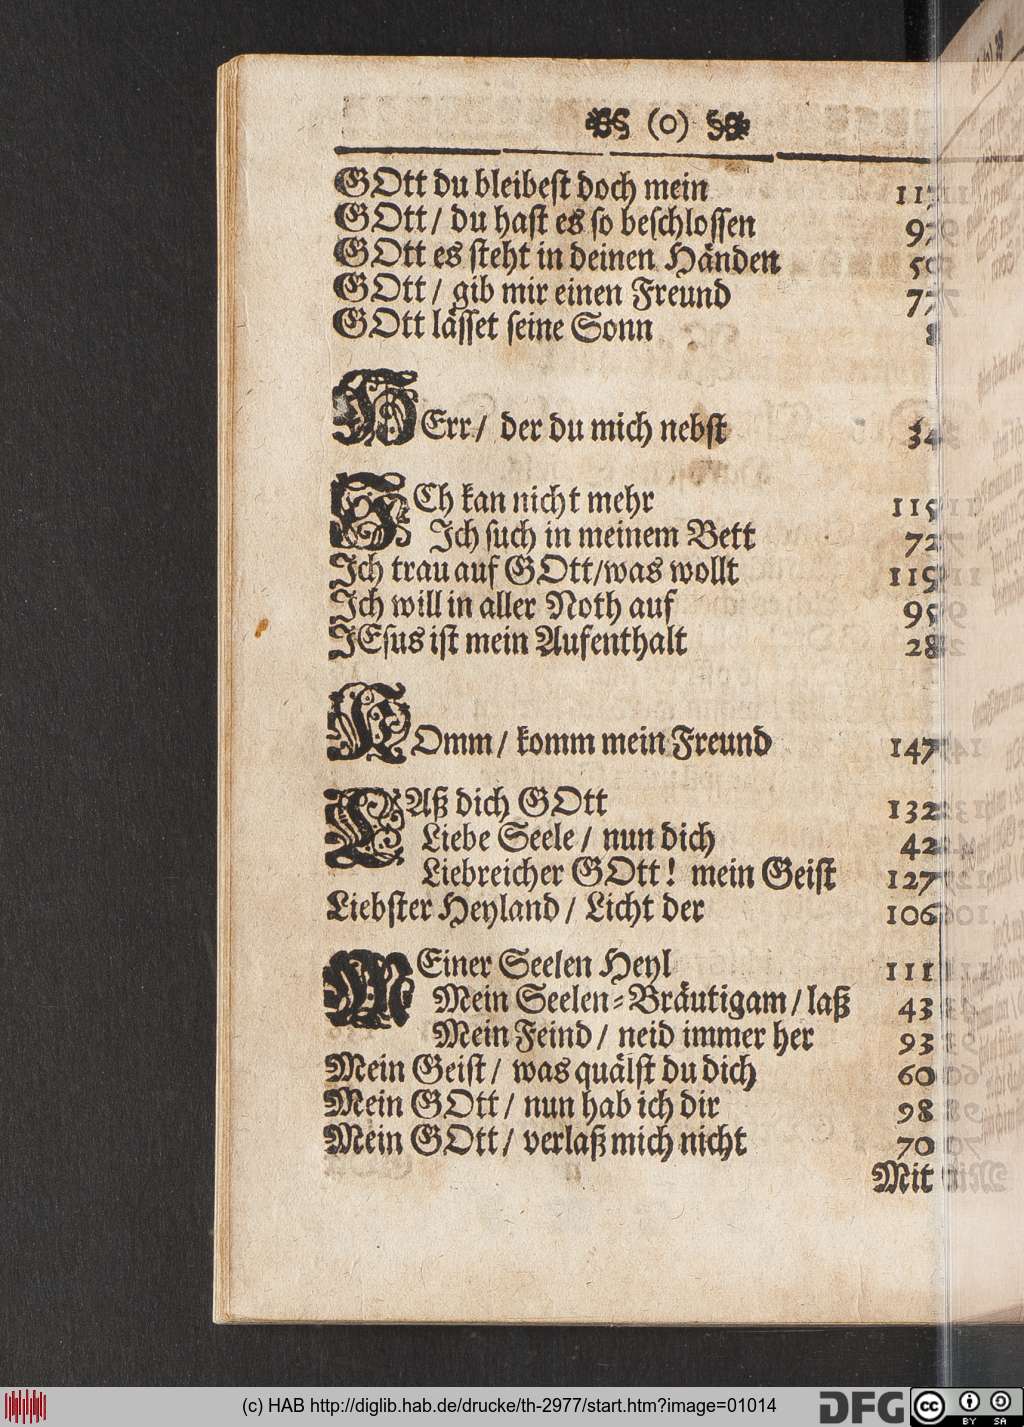 (o)
GOtt du bleibest doch mein
GOtt / du hast es so beschlossen 97
GOtt es steht in deinen Händen
GOtt / gib mir einen Freund 77
GOtt lässet seine Sonn 8
HErr / der du mich nebst 34
ICh kan nicht mehr 115
Ich such in meinem Bett 72
Ich trau auf GOtt/was wollt 119
Ich will in aller Noth auf 95
JEsus ist mein Aufenthalt 28
KOmm / komm mein Freund 147
LAß dich GOtt 132
Liebe Seele / nun dich 42
Liebreicher GOtt! mein Geist 127
Liebster Heyland / Licht der 106
MEiner Seelen Heyl 111
Mein Seelen-Bräutigam / laß 43
Mein Feind / neid immer her 93
Mein Geist / was quälst du dich 60
Mein GOtt / nun hab ich dir 98
Mein GOtt / verlaß mich nicht 70
Mit
(c) HAB http://diglib.hab.de/drucke/th-2977/start.htm?image=01014
DFG
cc BY SA